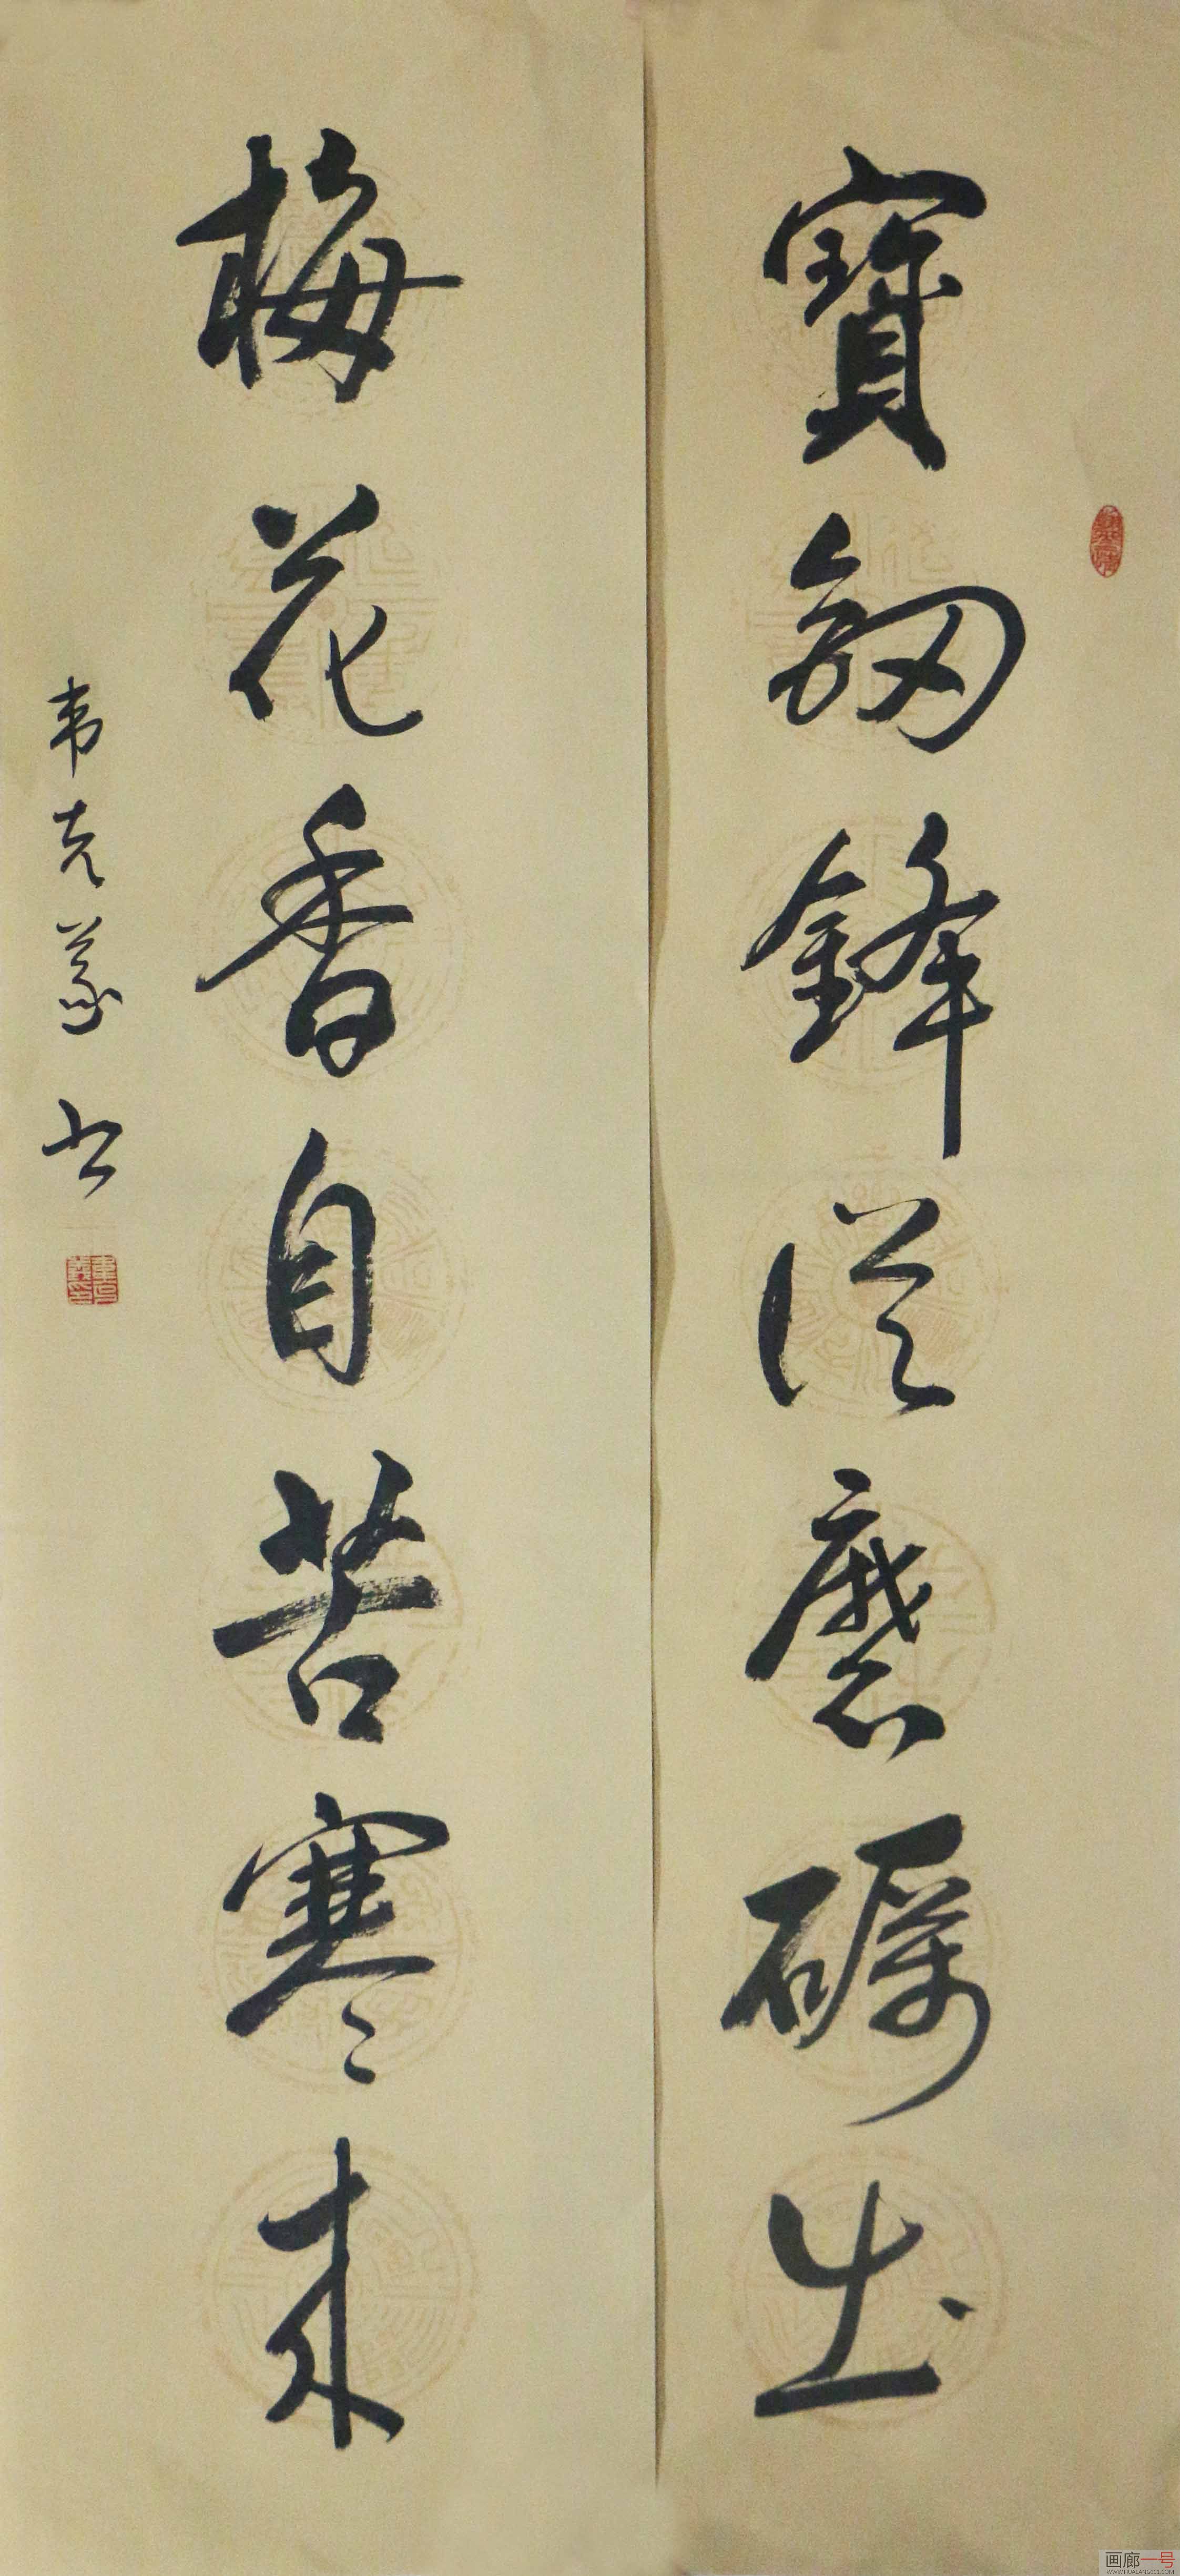 寶劔鋒從磨礪出
梅花香自苦寒來
韦克義书
画廊一号
WWW.HUALANG001.COM